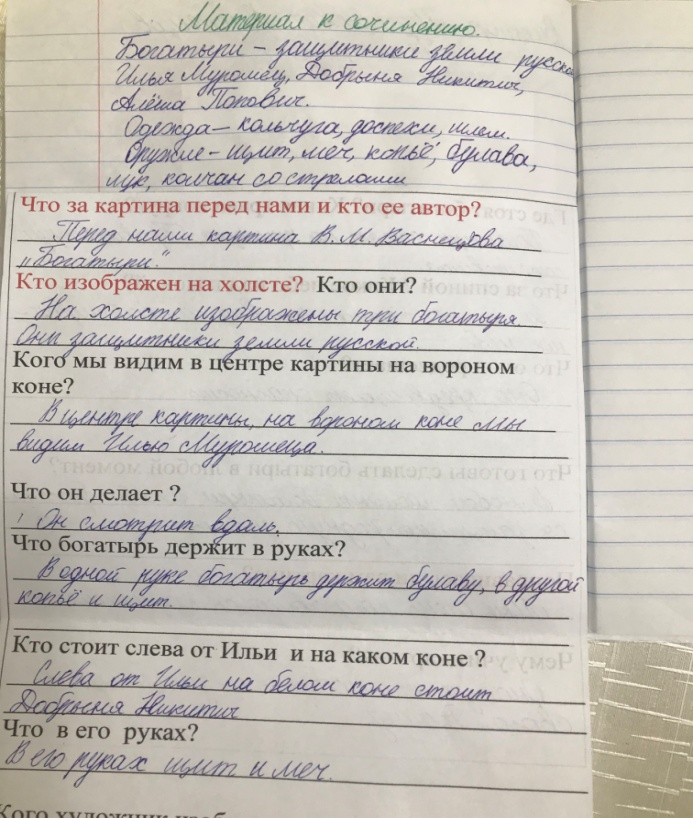 Материал к сочинению.
Богатыри – защитники земли русской
Илья Муромец, Добрыня Никитич,
Алёша Попович.
Одежда – кольчуга, доспехи, шлем.
Оружие – щит, меч, копьё, булава,
лук, колчан со стрелами
Что за картина перед нами и кто ее автор?
Перед нами картина В.М. Васнецова
„Богатыри."
Кто изображен на холсте? Кто они?
На холсте изображены три богатыря.
Они защитники земли русской.
Кого мы видим в центре картины на вороном
коне?
В центре картины, на вороном коне мы
видим Илью Муромеца.
Что он делает ?
Он смотрит вдаль.
Что богатырь держит в руках?
В одной руке богатырь держит булаву, в другой
копьё и щит.
Кто стоит слева от Ильи и на каком коне ?
Слева от Ильи на белом коне стоит
Добрыня Никитич
Что в его руках?
В его руках щит и меч.
Кого художник